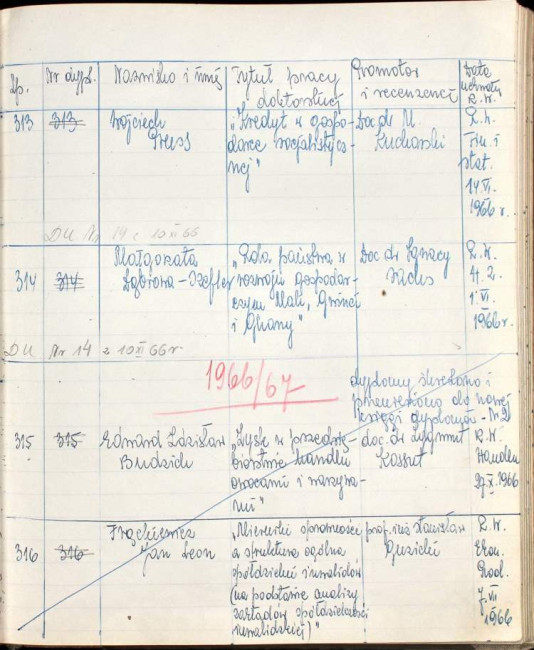 Lp. Nr dypl. Nazwisko i imię Tytuł pracy doktorskiej Promotor i recenzenci Data uchwały R.W.
313 313 Wojciech Pruss „Kredyt w gospo-
darce socjalistycz-
nej" Doc dr M Kucharski R.W. Fin. i stat. 14 VI. 1966 r.
DU Nr 14 z 10 XI 66
314 314 Małgorzata Dąbrowa-Szefler „Rola państwa w
rozwoju gospodar-
czym Mali, Gwinei
i Ghany" Doc dr Ignacy Sachs R.W. H.Z. 1 VI. 1966 r.
DU Nr 14 z 10 XI 66 r
1966/67
dyplomy skreślono i
przeniesiono do nowej
księgi dyplomów - Nr 2
315 315 Edward Zdzisław Budzich „Zysk w przedsię-
biorstwie handlu
owocami i warzywa-
mi" doc. dr Zygmunt Kossut R.W. Handlu 27 X. 1966
316 316 Frąckiewicz Jan Leon „Mierniki sprawności
a struktura ogólna
spółdzielni inwalidów
(na podstawie analizy
zakładów spółdzielczości
inwalidzkiej)" prof. Stanisław R.W. Ekon. Prod. 7. VII 1966